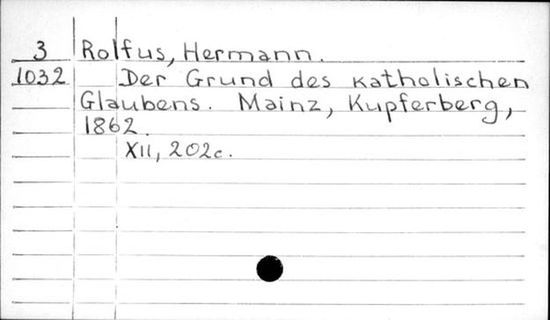 3 Rolfus, Hermann.
1032 Der Grund des katholischen
Glaubens. Mainz, Kupferberg,
1862.
XII, 202c.